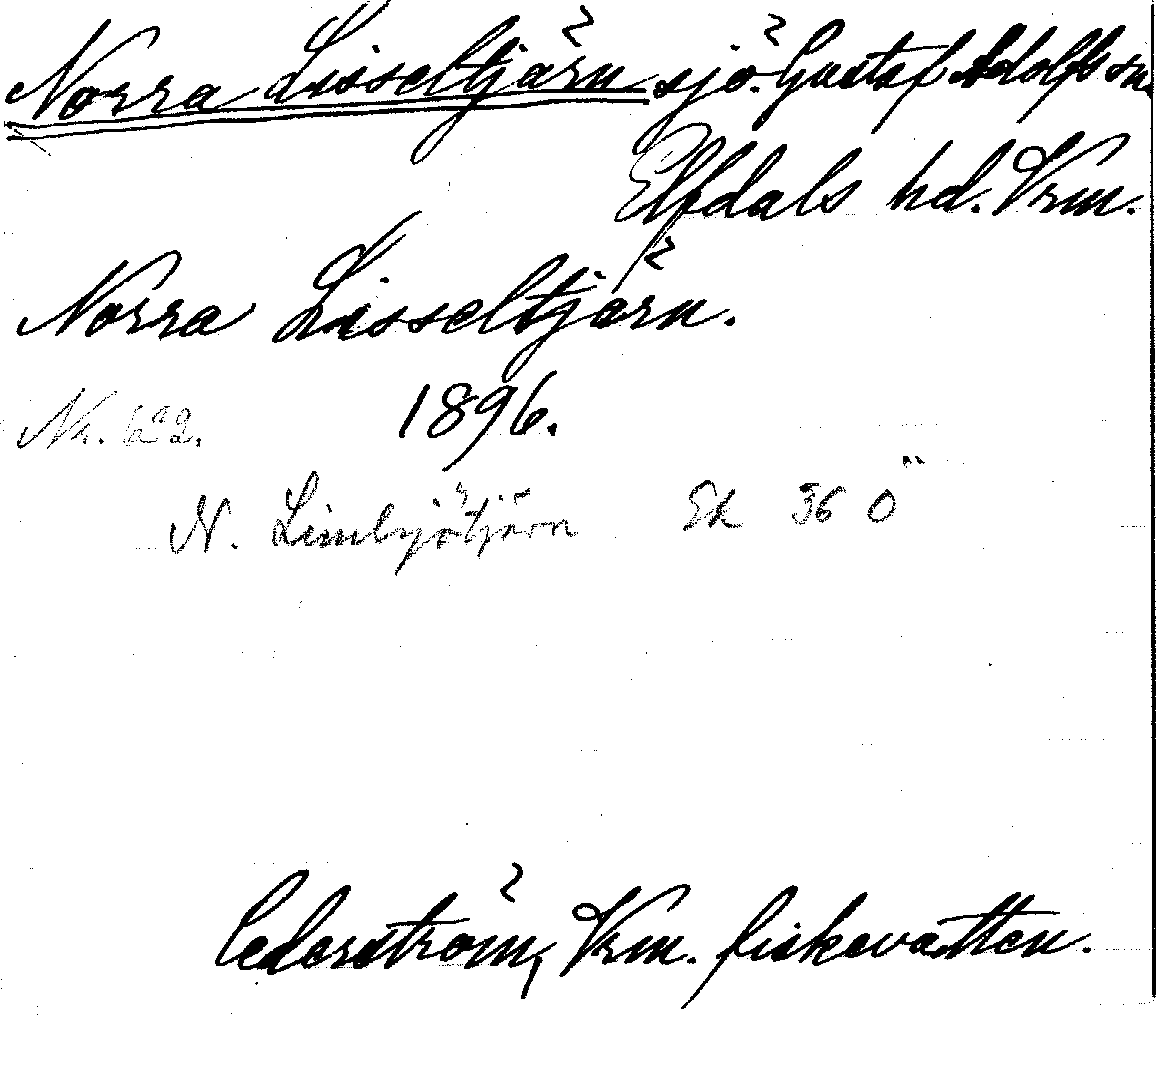 Norra Lisseltjärn sjö. Gustaf Adolfs sn.
Elfdals hd. Vrm.
Norra Lisseltjärn.
Nr. 622. 1896.
N. Limbsjötjärn Ek 36 0
Cederström, Vrm. fiskevatten.